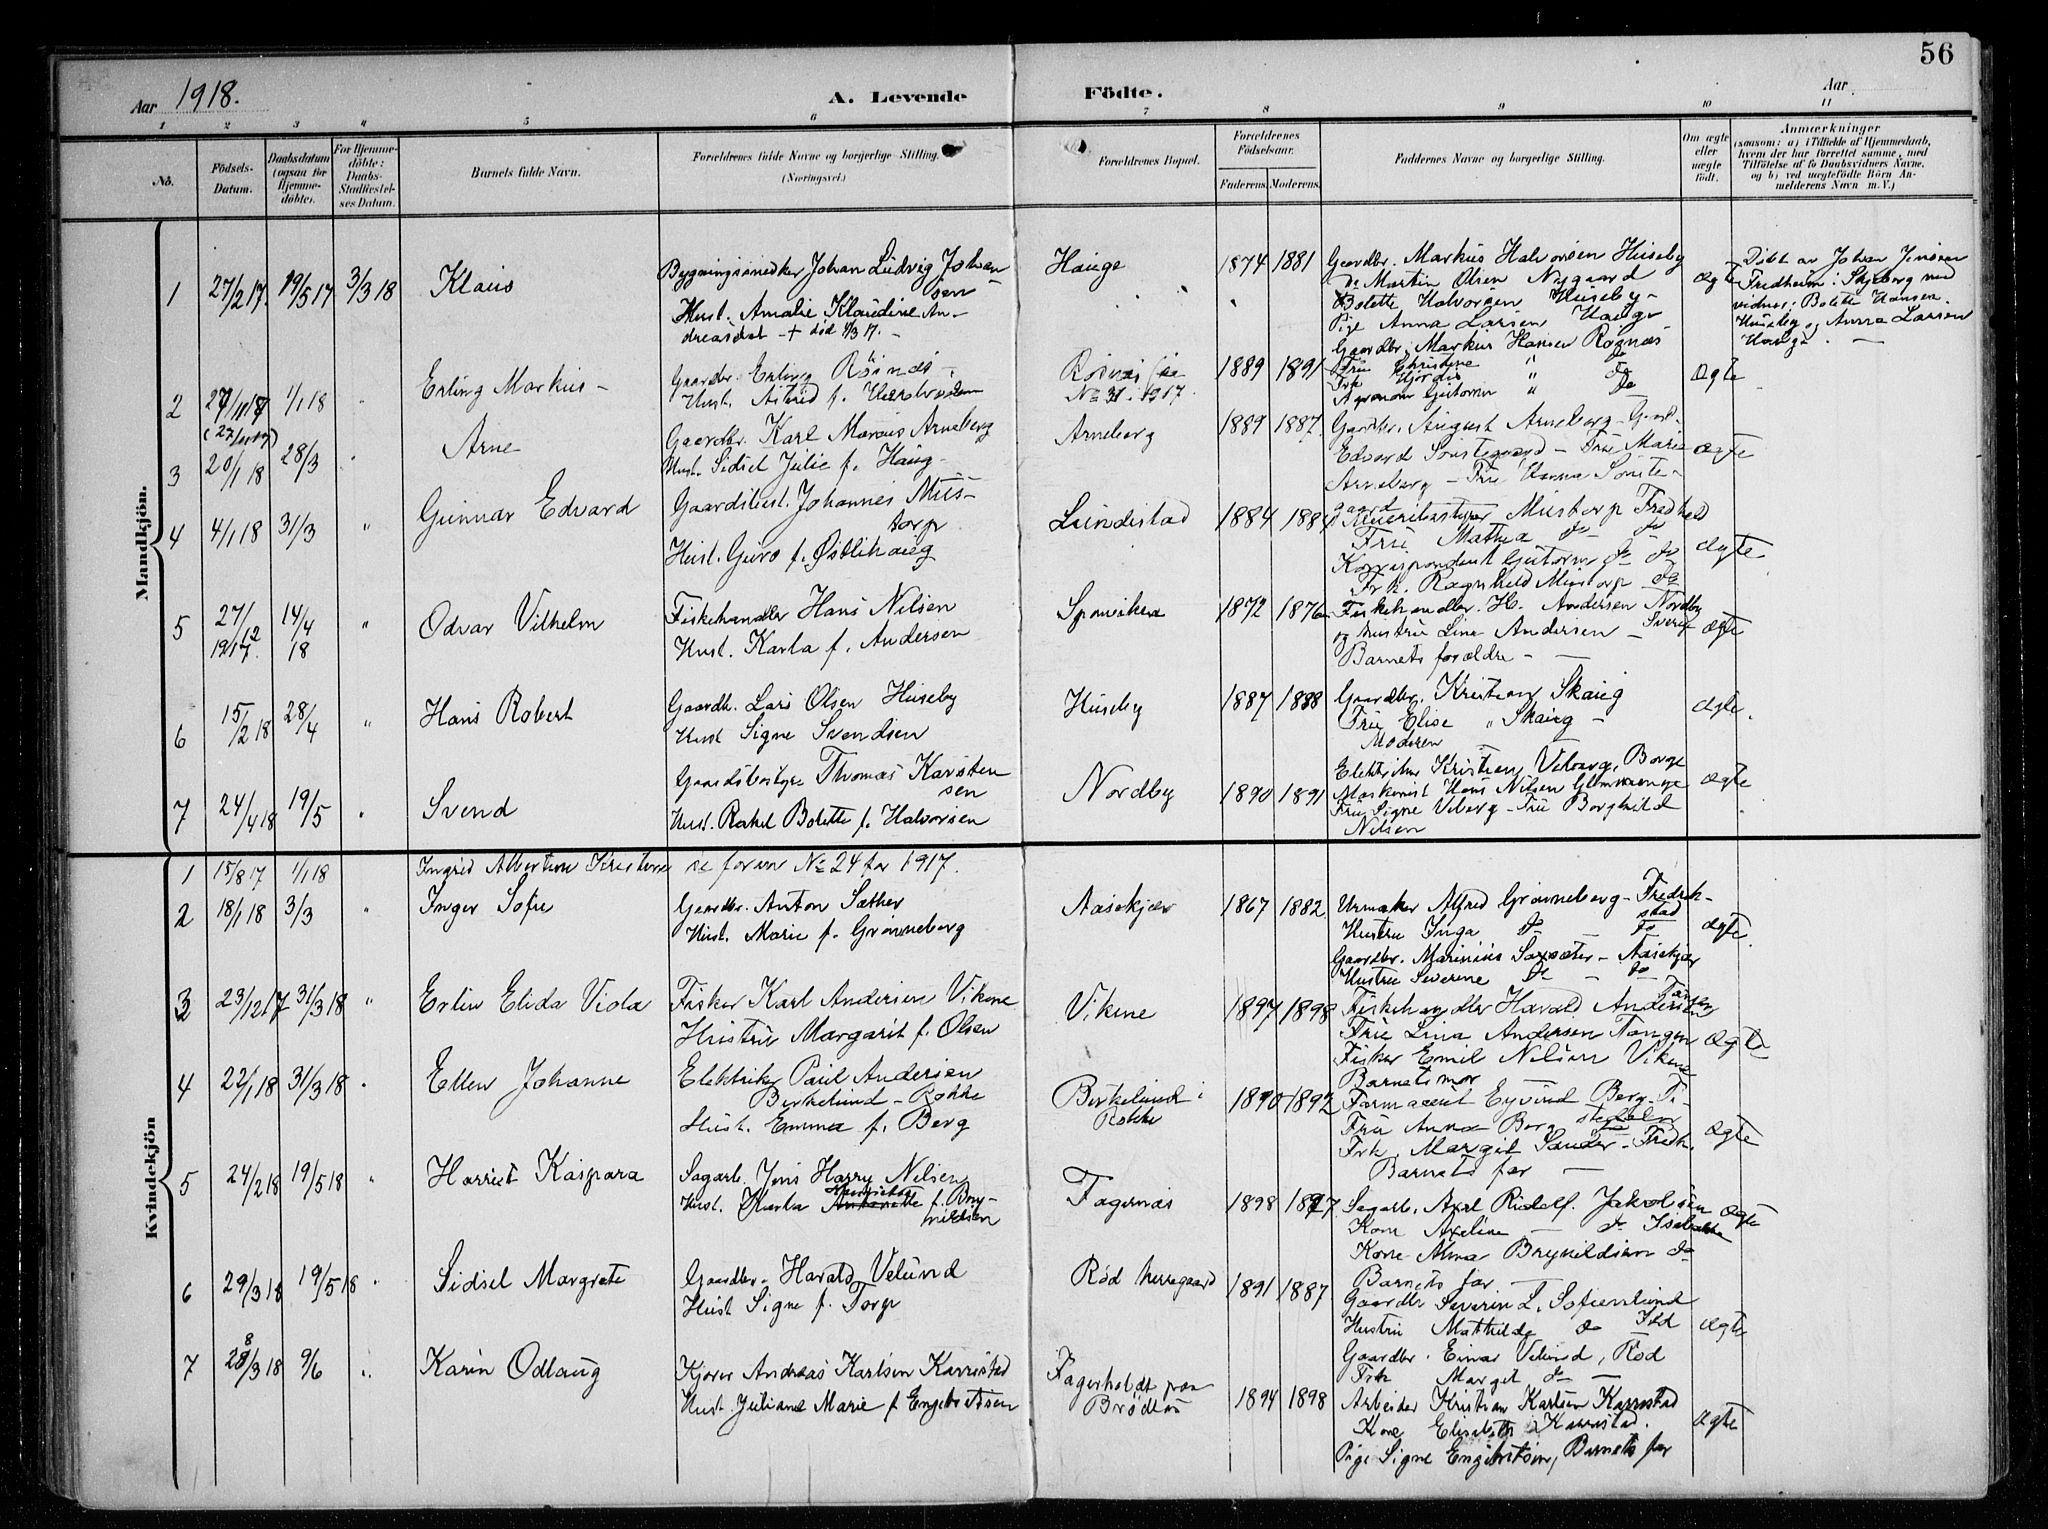 56
Aar 1918.
A. Levende
Födte.
Aar
1 2 3 4 5 6 7 8 9 10 11
No.
Födsels-
Datum.
Daabsdatum
(ogsaa for
Hjemme-
döbte).
For Hjemme-
döbte:
Daabs-
Stadfæstel-
ses Datum.
Barnets fulde Navn.
Forældrenes fulde Navne og borgerlige Stilling.
(Næringsvei.)
Forældrenes Bopæl.
Forældrenes
Födselsaar.
Faderens. Moderens.
Faddernes Navne og borgerlige Stilling.
Om ægte
eller
uægte
födt.
Anmærkninger
(saasom: a) i Tilfælde af Hjemmedaab,
hvem der har forrettet samme, med
Tilföielse af to Daabsvidners Navne,
og b) ved uægtefödte Börn An-
melderens Navn m. V.)
Mandkjön.
1 27/2 17. 19/5 17 3/3 18 Klaus
Bygningssnedker Johan Ludvig Johan-
sen
Hust. Amalie Klaudine An-
dreasdat + död 4/3 17. -
Hauge
1874 1881
Gaardbr. Markus Halvorsen Huseby
Do Martin Olsen Nygaard
Bolette Halvorsen Huseby -
Pige Anna Larsen Hauge
ægte
Döbt av Johan Jensen
Fredheim i Skjeberg med
vidner: Bolette Hansen
Huseby og Anna Larsen
Hauge. -
2 27/11 17 1/1 18 Erling Markus -
(27/11 17)
Gaardbr. Erling Rösnæs
Hust. Astrid f.
Rösnæs (se
No 31. 1917.
1889 1891
Gaardbr. Markus Hansen Rösnæs
Fru Christine " Do
Frk Hjördis " Do
Agronom Guttorm " Do
ægte
3 20/1 18 28/3 Arne
Gaardbr. Karl Marius Arneberg
Hust. Sidsel Julie f. Haug -
Arneberg
1889 1887
Gaardbr. August Arneberg - Gaardbr.
Edvard Sönstegaard - Fru Marie
Arneberg - Fru Hanna Sönste-
gaard
ægte
4 4/1 18 31/3 " Gunnar Edvard
Gaardsbest. Johannes Mus-
torp
Hust. Guro f. Østlihaug
Lundestad
1884 1884
Mustorp Fredhold
Frue Mathea do do
Korrespondent Guttorm do do
Frk. Ragnhild Mustorp do
ægte
5 27/12 1917 14/4 18 " Odvar Vilhelm
Fiskehandler Hans Nilsen
Hust. Karla f. Andersen
Sponviken
1872 1876
Fiskehandler. H. Andersen Nordby
og hustru Lina Andersen - Sverig
Barnets forældre -
ægte
6 15/2 18 28/4 " Hans Robert
Gaardb. Lars Olsen Huseby
Hust Signe Svendsen
Huseby
1887 1888
Gaardbr. Kristian Skaug
Fru Elise " Skaug -
Moderen
ægte.
7 24/4 18 19/5 Svend
Gaardsbestyrer Thomas Karsten
sen
Hust. Rakel Bolette f. Halvorsen
Nordby
1890 1891
Elektriker Kristian Viberg, Borge
Maskinist Hans Nilsen Glemminge
Fru Signe Viberg - Fru Borghild
Nilsen
ægte
Kvindekjön
1 15/8 17 1/1 18 Ingrid Albertine Kristine se foran No 24 for 1917.
2 18/1 18 3/3 " Inger Sofie
Gaardbr. Anton Sæther
Hust. Marie f. Grönneberg
Aasekjær
1867 1882
Urmaker Alfred Grönneberg - Fredrik-
stad
Hustru Inga do - Do
Gaardbr. Marinius - Aasekjær
Hustru Severine do - do
ægte.
3 23/12 17 31/3 18 " Erlin Elida Viola
Fisker Karl Andersen Vikene
Hustru Margarit f. Olsen
Vikene
1897 1898
Fiskehandler Harald Andersen Tangen
Fru Lina Andersen Tangen
Fisker Emil Nilsen Vikene
Barnets mor
ægte
4 22/1 18 31/3 18 Ellen Johanne
Elektriker Paul Andersen
Birkelund - Rokke
Hust. Emma f. Berg
Birkelund i
Rokke
1890 1892
Farmaceut Eyvind Berg. Ti-
stedalen
Fru Anna Berg do
Frk. Margit Sander - Fredh.
Barnets far -
ægte
5 24/2 18 19/5 18 " Harriet Kaspara
Sagarb. Jens Harry Nilsen
Hust. Karla Henriette f. Bry-
nildsen
Fagernæs
1898 1897
Sagarb. Axel Rudolf Jakobsen
Kone Axeline - do Isebakke
Kone Alma Brynildsen do
Barnets far -
ægte
6 29/3 18 19/5 18 " Sidsel Margrete
Gaardbr. Harald Velund
Hust Signe f. Torp
Rød herregaard
1891 1887
Gaardbr Severin L. Sofienlund
Hustru Mathilde do Idd
Gaardbr. Einar Velund, Röd
Frk Margit do -
ægte
7 28/3 18 9/6 " Karin Odlaug
Kjører Andreas Karlsen Karrestad
Hust. Juliane Marie f Engebretsen
Fagerholdt paa
Brödlös
1894 1898
Arbeider Kristian Karlsen Karrestad
Kone Elisabeth Karrestad.
Pige Signe Engebretsen, Barnets far
ægte